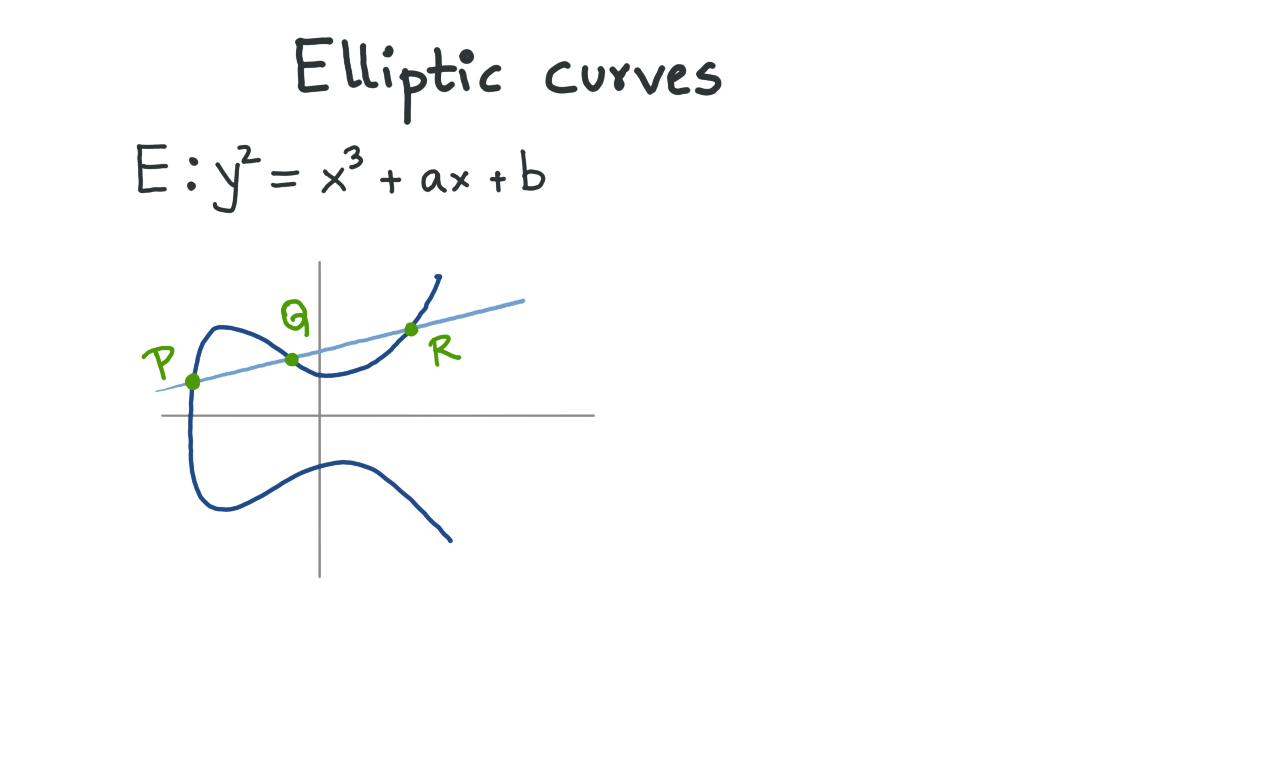 Elliptic curves
E : y² = x³ + ax + b
Q
P
R